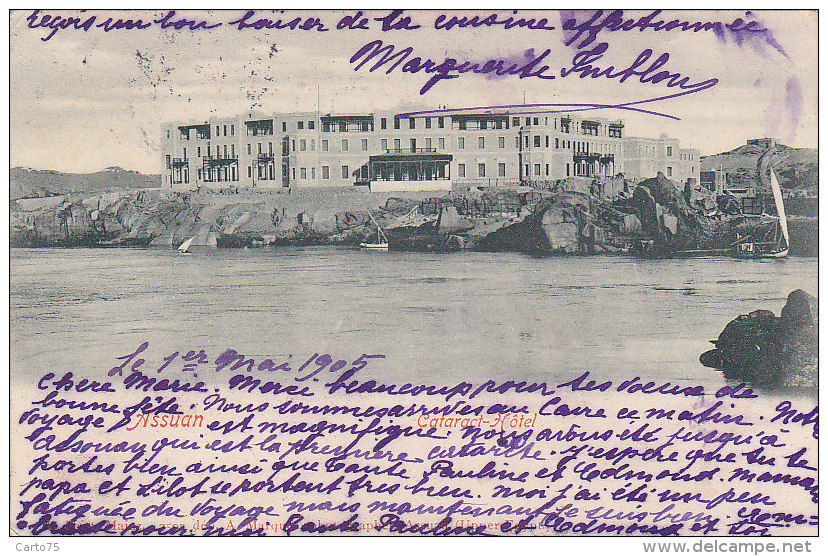 Reçois un bon baiser de la cousine affectionnée
Marguerite
Le 1er Mai 1905
Chère Marie. Merci beaucoup pour tes voeux de
bonne fête. Nous sommes arrivés au Caire ce matin. Notre
voyage est magnifique nous avons été jusqu'à
Assuan Cataract-Hôtel
Assouan qui est la première cataracte. J'espère que tu te
portes bien ainsi que Tante Pauline et Edmond. maman
papa et se portent très bien. moi j'ai été un peu
fatiguée du voyage mais maintenant je suis bien.
pour moi Tante Pauline et Edmond et toi
Carto75
www.delcampe.net